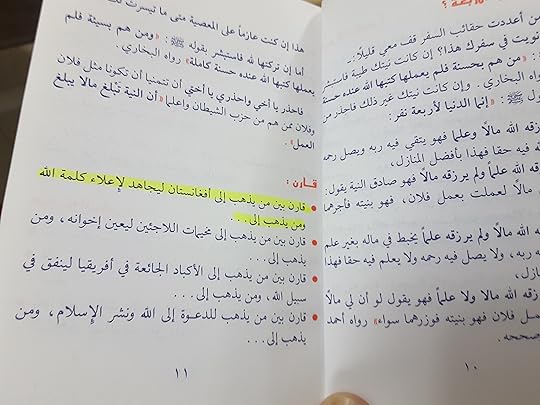 من أعددت حقائب السفر قف معي قليلًا:ـ
نويت في سفرك هذا؟ إن كانت نيتك طيبة فاستبشر
: «من هم بحسنة فلم يعملها كتبها الله عنده حسنة
رواه البخاري. وإن كانت نيتك غير ذلك فاحذر من
قول ﷺ: «إنما الدنيا لأربعة نفر:
زقه الله مالًا وعلما فهو يتقي فيه ربه ويصل رحمه
فيه حقا فهذا بأفضل المنازل،
زقه الله علما ولم يرزقه مالا فهو صادق النية يقول:
مالًا لعملت بعمل فلان، فهو بنيته فأجرهما
الله مالًا ولم يرزقه علماً يخبط في ماله بغير علم
ربه، ولا يصل فيه رحمه ولا يعلم فيه حقا فهذا
زقه الله مالا ولا علماً فهو يقول لو أن لي مالًا
عمل فلان فهو بنيته فوزرهما سواء» رواه أحمد
صححه.
١٠
هذا إن كنت عازماً على المعصية متى ما تيسرت
أما إن تركتها لله فاستبشر بقوله ﷺ: «ومن هم بسيئة فلم
يعملها كتبها الله عنده حسنة كاملة» رواه البخاري.
فاحذر يا أخي واحذري يا أختي أن تتمنيا أن تكونا مثل فلان
وفلان ممن هم من حزب الشيطان واعلما «أن النية تبلغ مالا يبلغ
العمل».
قارن:
• قارن بين من يذهب إلى أفغانستان ليجاهد لإعلاء كلمة الله
ومن يذهب إلى...
• قارن بين من يذهب إلى مخيمات اللاجئين ليعين إخوانه، ومن
يذهب إلى...
• قارن بين من يذهب إلى الأكباد الجائعة في أفريقيا لينفق في
سبيل الله، ومن يذهب إلى...
• قارن بين من يذهب للدعوة إلى الله ونشر الإسلام، ومن
يذهب إلى...
١١